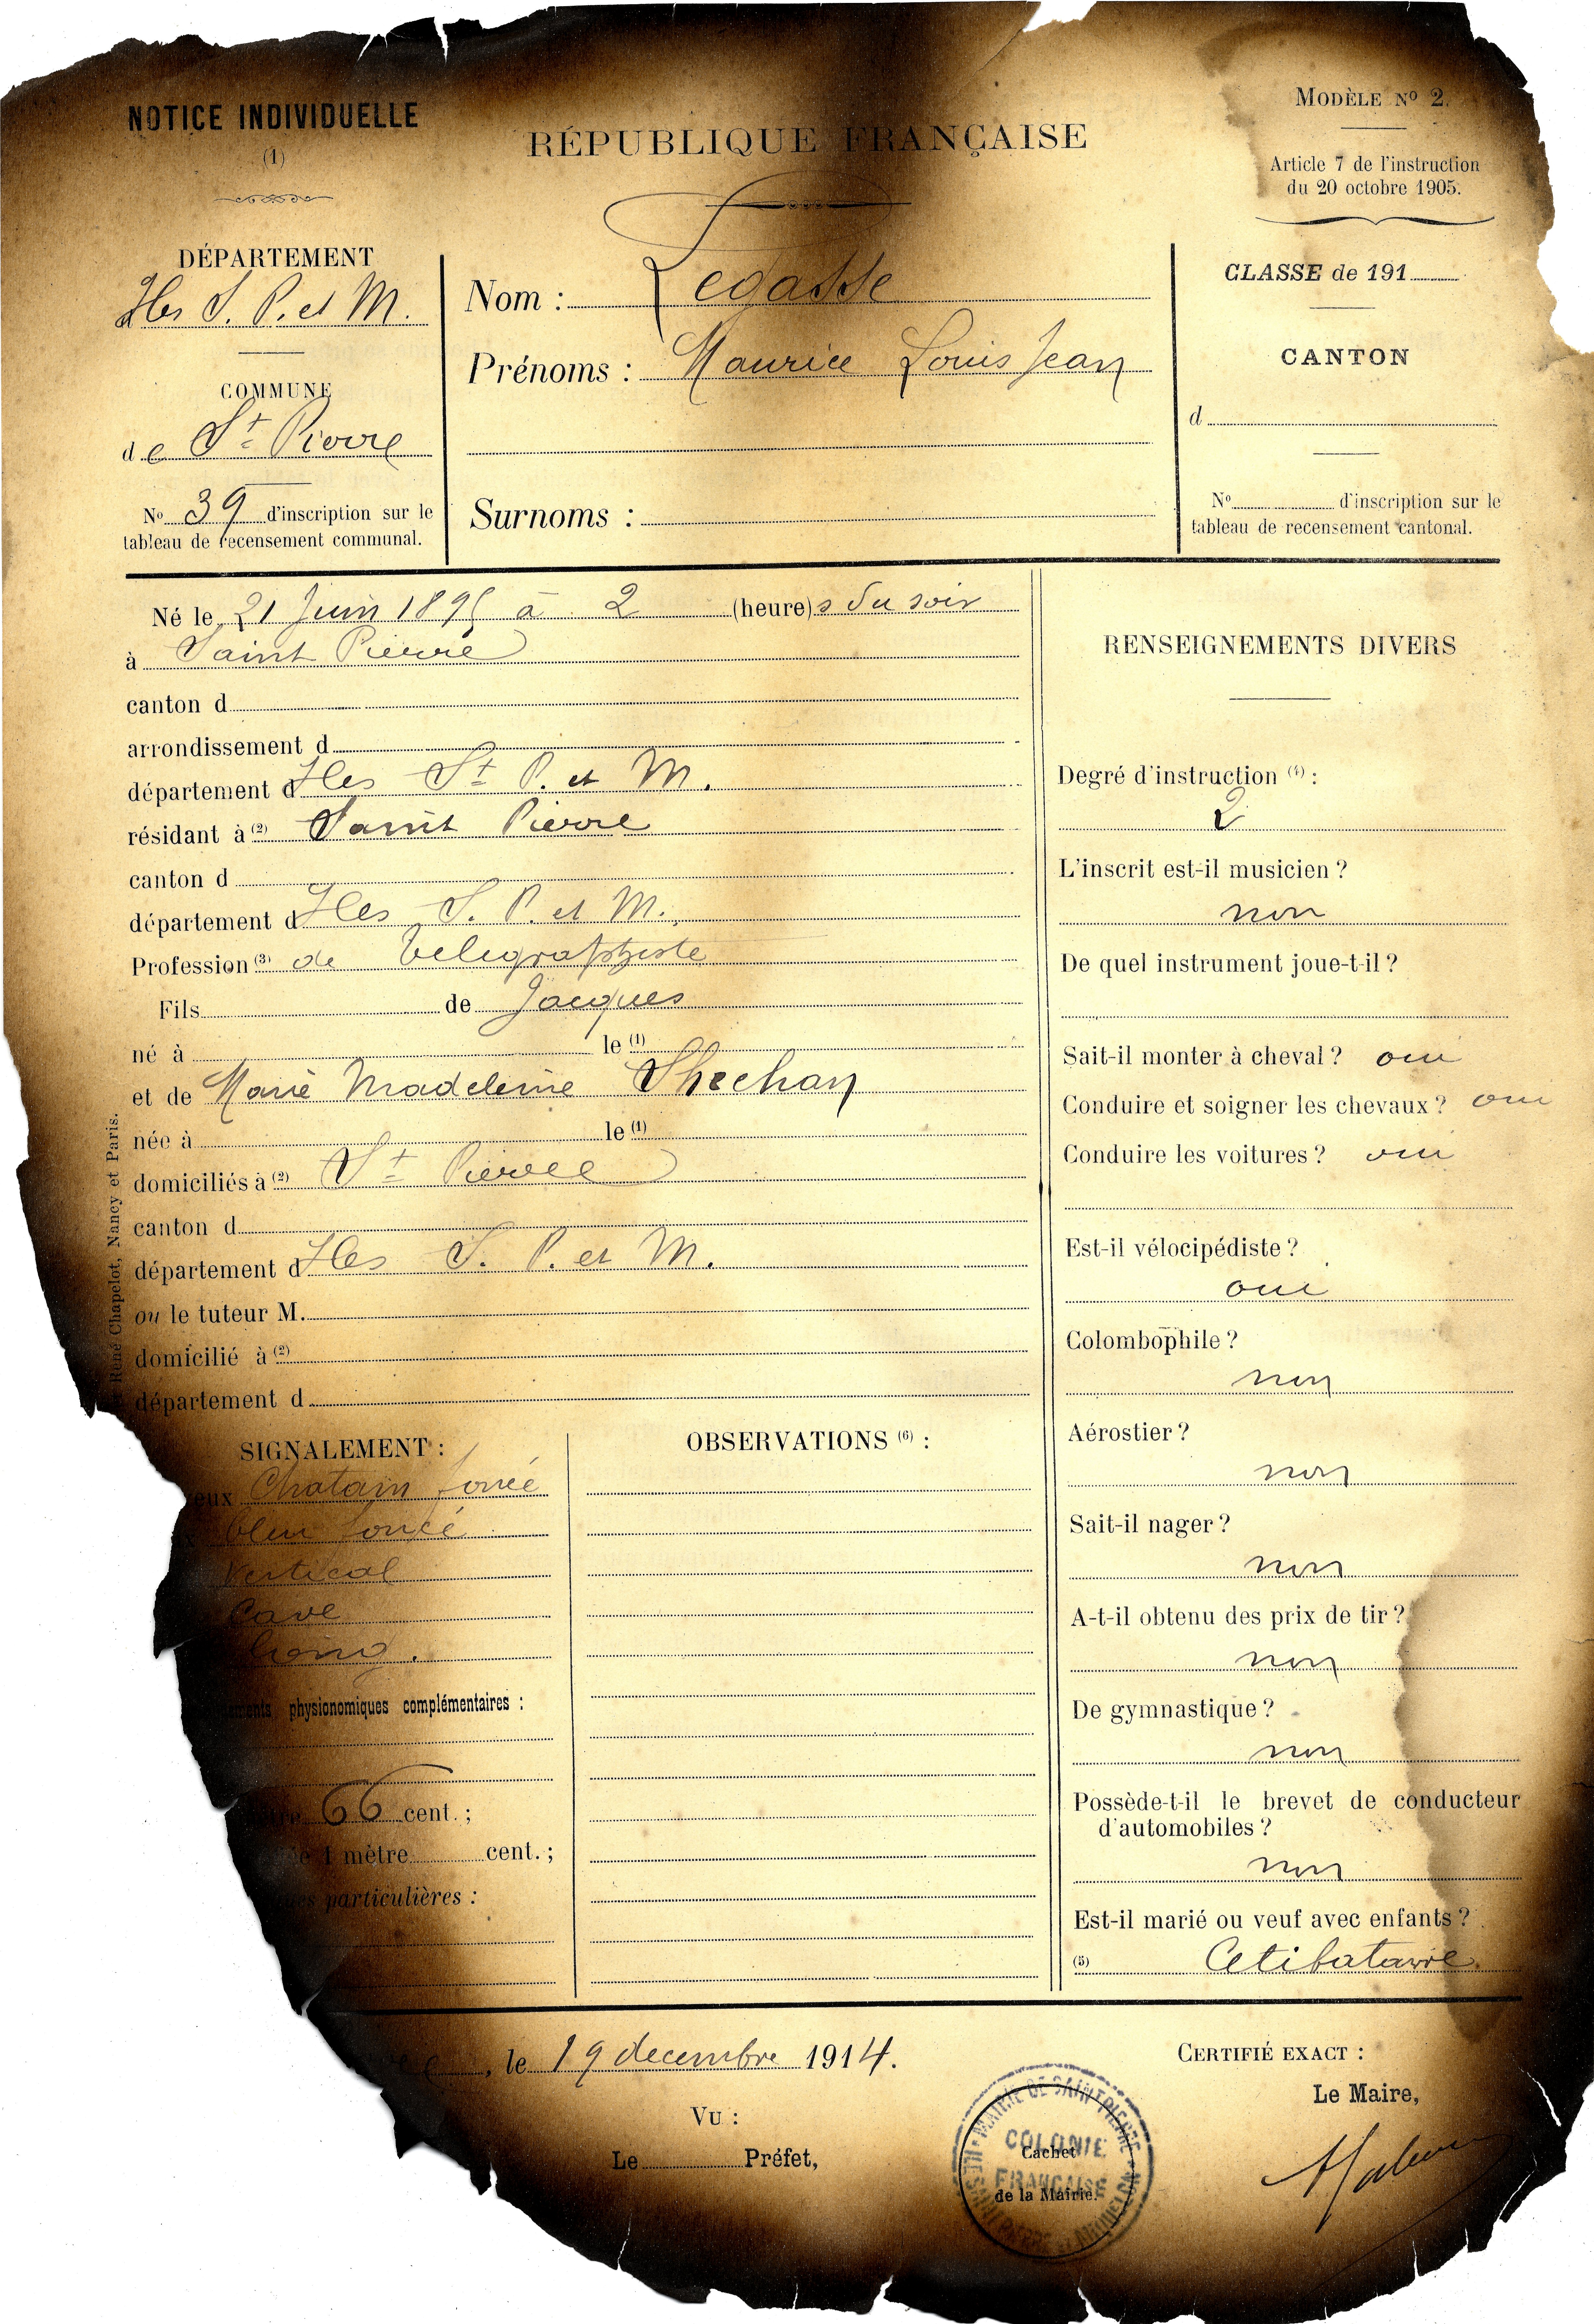 NOTICE INDIVIDUELLE
(1)
RÉPUBLIQUE FRANÇAISE
MODÈLE No 2.
Article 7 de l'instruction
du 20 octobre 1905.
DÉPARTEMENT
Iles S. P. et M.
COMMUNE
de St Pierre
No 39 d'inscription sur le
tableau de recensement communal.
Nom : Legasse
Prénoms : Maurice Louis Jean
Surnoms :
CLASSE de 191
CANTON
d
No d'inscription sur le
tableau de recensement cantonal.
Né le 21 Juin 1895 à 2 (heure)s du soir
à Saint Pierre
canton d
arrondissement d
département d Iles St P. et M.
résidant à (2) Saint Pierre
canton d
département d Iles S. P. et M.
Profession (3) de télégraphiste
Fils de Jacques
né à le (1)
et de Marie Madeleine Shechan
née à le (1)
domiciliés à (2) St Pierre
canton d
département d Iles S. P. et M.
ou le tuteur M.
domicilié à (2)
département d
René Chapelot, Nancy et Paris.
SIGNALEMENT :
eux Chatain foncé
bleu foncé
Vertical
Cave
long.
ments physionomiques complémentaires :
66 cent. ;
1 mètre cent. ;
particulières :
OBSERVATIONS (6) :
RENSEIGNEMENTS DIVERS
Degré d'instruction (4) :
2
L'inscrit est-il musicien ?
non
De quel instrument joue-t-il ?
Sait-il monter à cheval ? oui
Conduire et soigner les chevaux ? oui
Conduire les voitures ? oui
Est-il vélocipédiste ?
oui
Colombophile ?
non
Aérostier ?
non
Sait-il nager ?
non
A-t-il obtenu des prix de tir ?
non
De gymnastique ?
non
Possède-t-il le brevet de conducteur
d'automobiles ?
non
Est-il marié ou veuf avec enfants ?
(5) Célibataire.
, le 19 decembre 1914.
VU :
Le Préfet,
MAIRIE DE SAINT PIERRE
COLONIE
FRANÇAISE
ILES SAINT PIERRE et MIQUELON
Cachet
de la Mairie.
CERTIFIÉ EXACT :
Le Maire,